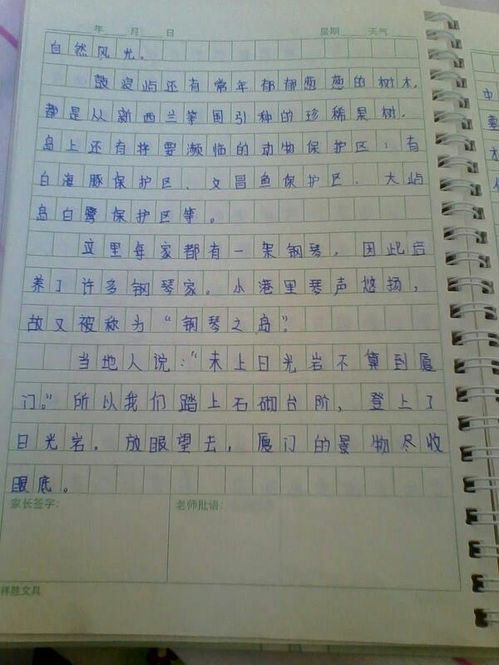 年 月 日 星期 天气
自然风光。
鼓浪屿还有常年郁郁葱葱的树木,
都是从新西兰等国引种的珍稀果树.
岛上还有将要濒临的动物保护区:有
白海豚保护区、文昌鱼保护区、大屿
岛白鹭保护区等。
这里每家都有一架钢琴,因此后
养了许多钢琴家。小港里琴声悠扬,
故又被称为“钢琴之岛”.
当地人说:“未上日光岩不算到厦
门。”所以我们踏上石砌台阶,登上了
日光岩.放眼望去,厦门的景物尽收
眼底。
家长签字: 老师批语:
祥胜文具